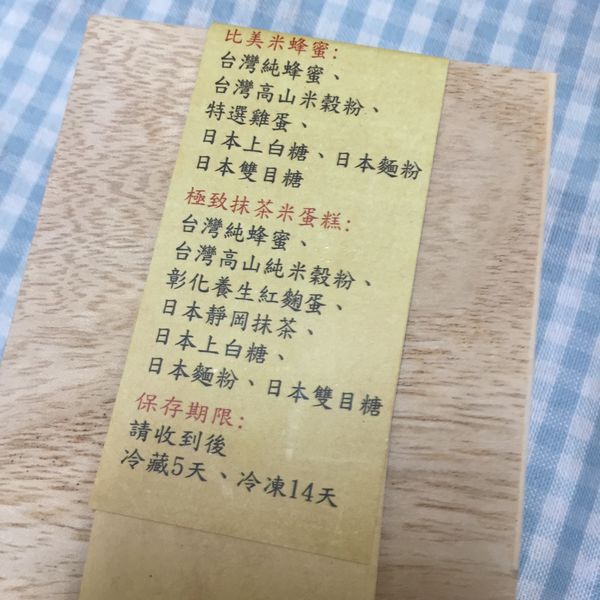 比美米蜂蜜:
台灣純蜂蜜、
台灣高山米穀粉、
特選雞蛋、
日本上白糖、日本麵粉
日本雙目糖
極致抹茶米蛋糕:
台灣純蜂蜜、
台灣高山純米穀粉、
彰化養生紅麴蛋、
日本靜岡抹茶、
日本上白糖、
日本麵粉、日本雙目糖
保存期限:
請收到後
冷藏5天、冷凍14天